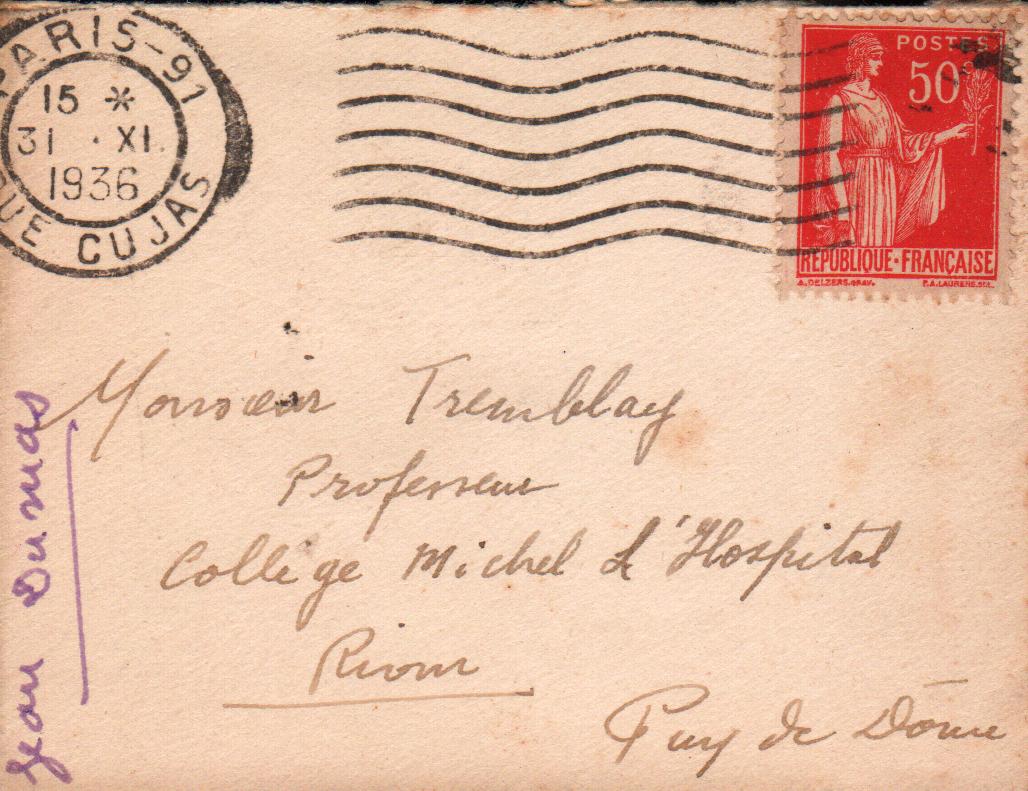 PARIS-91
15 *
31 · XI.
1936
RUE CUJAS
POSTES
50c
REPUBLIQUE·FRANÇAISE
A.DELZERS.GRAV. P.A.LAURENS.DEL.
Monsieur Tremblay
Professeur
Collège Michel L'Hospital
Riom
Puy de Dôme
Jean Dumas